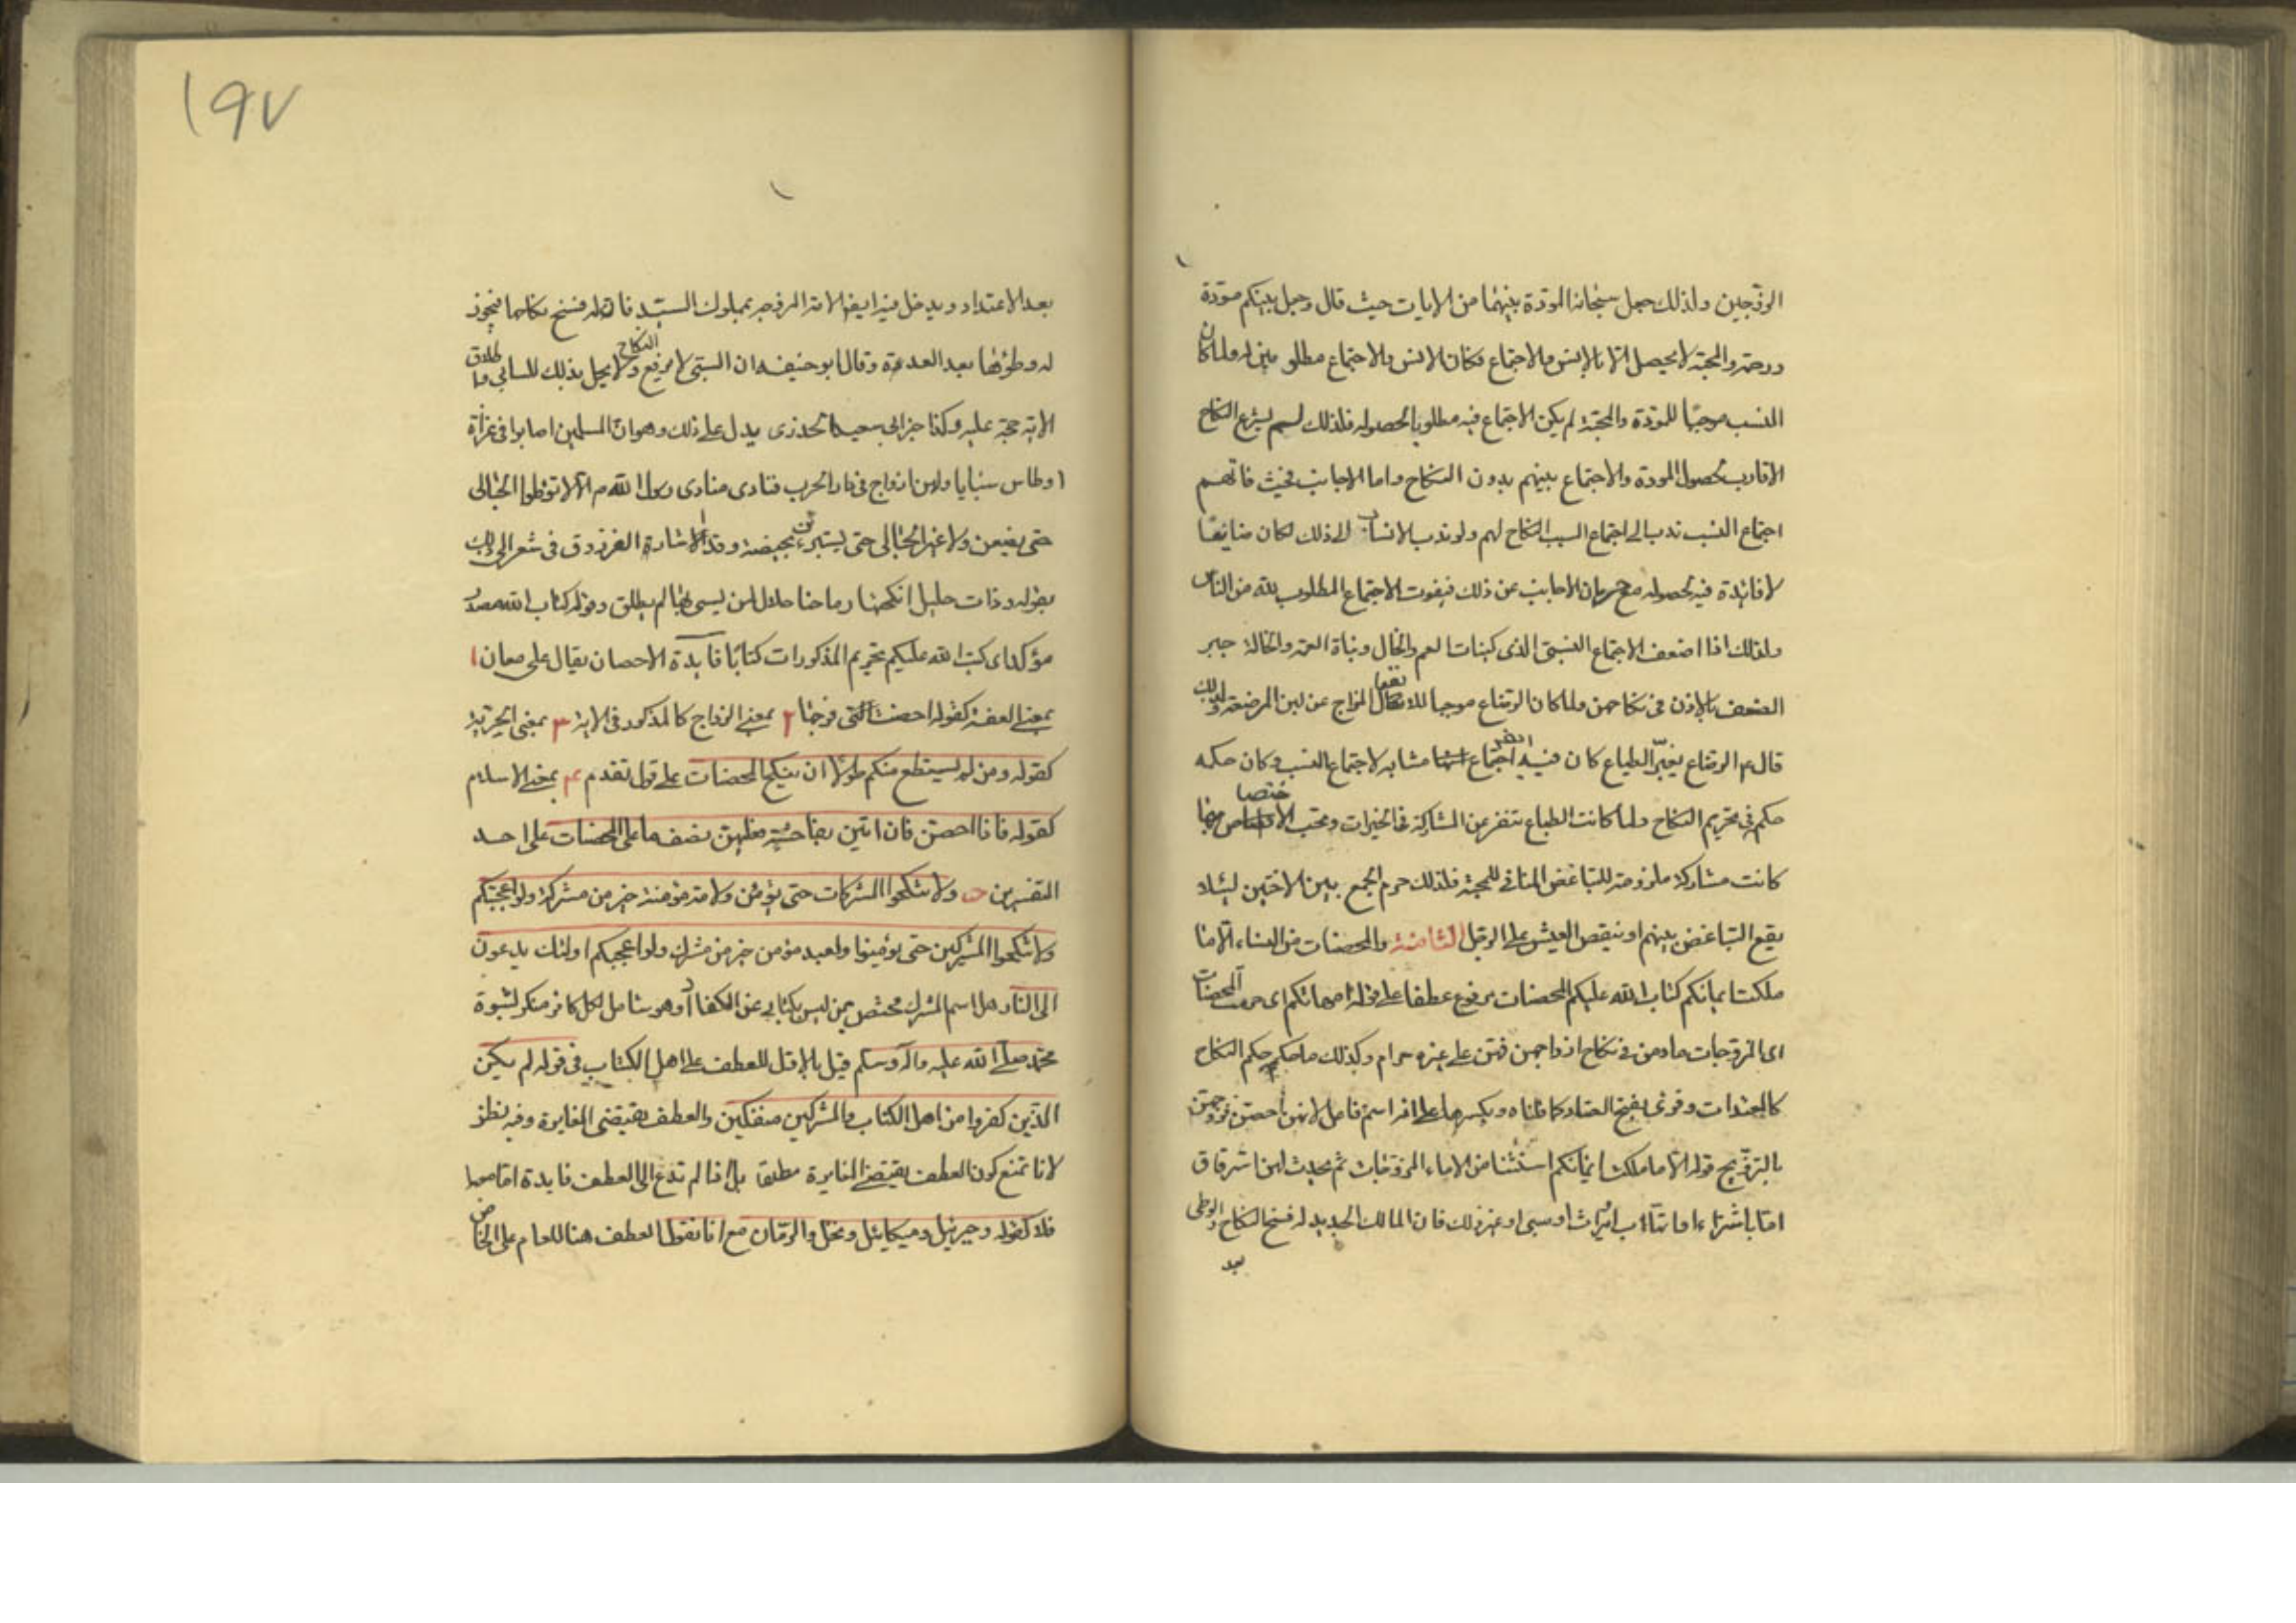 الزوجين ولذلك جعل سبحانه المودة بينهما من الايات حيث قال وجعل بينكم مودة
ورحمة والمحبة لا يحصل الا بالانس والاجتماع فكان الانس والاجتماع مطلوبين له ولما كان
النسب موجبا للمودة والمحبة لم يكن الاجتماع فيه مطلوبا لحصوله فلذلك لم يشرع النكاح
الاقارب لحصول المودة والاجتماع بينهم بدون النكاح واما الاجانب فحيث فاتهم
اجتماع النسب ندب الى اجتماع السبب النكاح لهم ولو ندب الانساب الى ذلك لكان ضايعا
لا فائدة فيه لحصوله مع حرمان الاجانب عن ذلك فيفوت الاجتماع المطلوب لله من الناس
ولذلك اذا اضعف الاجتماع النسبى الذى كبنات العم والخال وبناة العمة والخالة جبر
الضعف بالاذن فى نكاحهن ولما كان الرضاع موجبا للانتقال المزاج عن لبن المرضعة ولذلك
قال ع الرضاع يغير الطباع كان فيه اجتماع ايضا مشابه لاجتماع النسب وكان حكمه
حكمه فى تحريم النكاح ولما كانت الطباع تنفر عن المشاركة فى الخيرات وتحب الاختصاص بها
كانت مشاركة ملزومة للتباغض المنافى للمحبة فلذلك حرم الجمع بين الاختين لئلا
يقع التباغض بينهم او ينقص العيش على الرجل الثامنة والمحصنات من النساء الا ما
ملكت ايمانكم كتاب الله عليكم المحصنات مرفوع عطفا على قوله امهاتكم اى حرمت المحصنات
اى المزوجات ما دمن فى نكاح ازواجهن فهن على غيره حرام وكذلك ما حكمه حكم النكاح
كالمعتدات وقرئ بفتح الصاد كما قلناه وبكسرها على انه اسم فاعل لانهن احصن فروجهن
بالتزويج قوله الا ما ملكت ايمانكم استثنا من الاماء المزوجات ثم يحدث لهن استرقاق
اما بشراء او اتهاب او ميراث او سبى او غير ذلك فان المالك الجديد له فسخ النكاح والوطى
بعد
١٩٧
بعد الاعتداد ويدخل فيه ايضا الامة المزوجة بمملوك السيد فان له فسخ نكاحها فيجوز
له وطؤها بعد العدة وقال ابو حنيفه ان السبى لا يرفع النكاح ولا يحل بذلك للسابى واطلاق
الاية حجة عليه وكذا خبر ابى سعيد الخدرى يدل على ذلك وهو ان المسلمين اصابوا فى غزاة
اوطاس سبايا ولهن ازواج فى دار الحرب فنادى منادى رسول الله ص الا لا توطوا الحبالى
حتى يضعن ولا غير الحبالى حتى يستبرئن بحيضة وقد اشار الفرزدق فى شعر الى ذلك
بقوله وذات حليل انكحتها رماحنا حلال لمن يبنى بها لم يطلق وقوله كتاب الله مصدر
مؤكد اى كتب الله عليكم تحريم المذكورات كتابا فايدة الاحصان يقال على معان ١
بمعنى العفة كقوله احصنت التى فرجها ٢ بمعنى الزواج كالمذكور فى الاية ٣ بمعنى الحرية
كقوله ومن لم يستطع منكم طولا ان ينكح المحصنات على قول تقدم ٤ بمعنى الاسلام
كقوله فاذا احصن فان اتين بفاحشة فعليهن نصف ما على المحصنات على احد
التفسيرين ولا تنكحوا المشركات حتى يؤمن ولامة مؤمنة خير من مشركة ولو اعجبتكم
ولا تنكحوا المشركين حتى يؤمنوا ولعبد مؤمن خير من مشرك ولو اعجبكم اولئك يدعون
الى النار هل اسم المشرك مختص بمن ليس بكتابى من الكفار او هو شامل لكل كافر منكر لنبوة
محمد صلى الله عليه واله وسلم قيل بالاول للعطف على اهل الكتاب فى قوله لم يكن
الذين كفروا من اهل الكتاب والمشركين منفكين والعطف يقتضى المغايرة وفيه نظر
لانا نمنع كون العطف يقتضى المغايرة مطلقا بل اذا لم تدع الى العطف فايدة اما معها
فلا كقوله وجبرئيل وميكائيل ونخل والرمان مع انا نقول العطف هنا للعام على الخاص